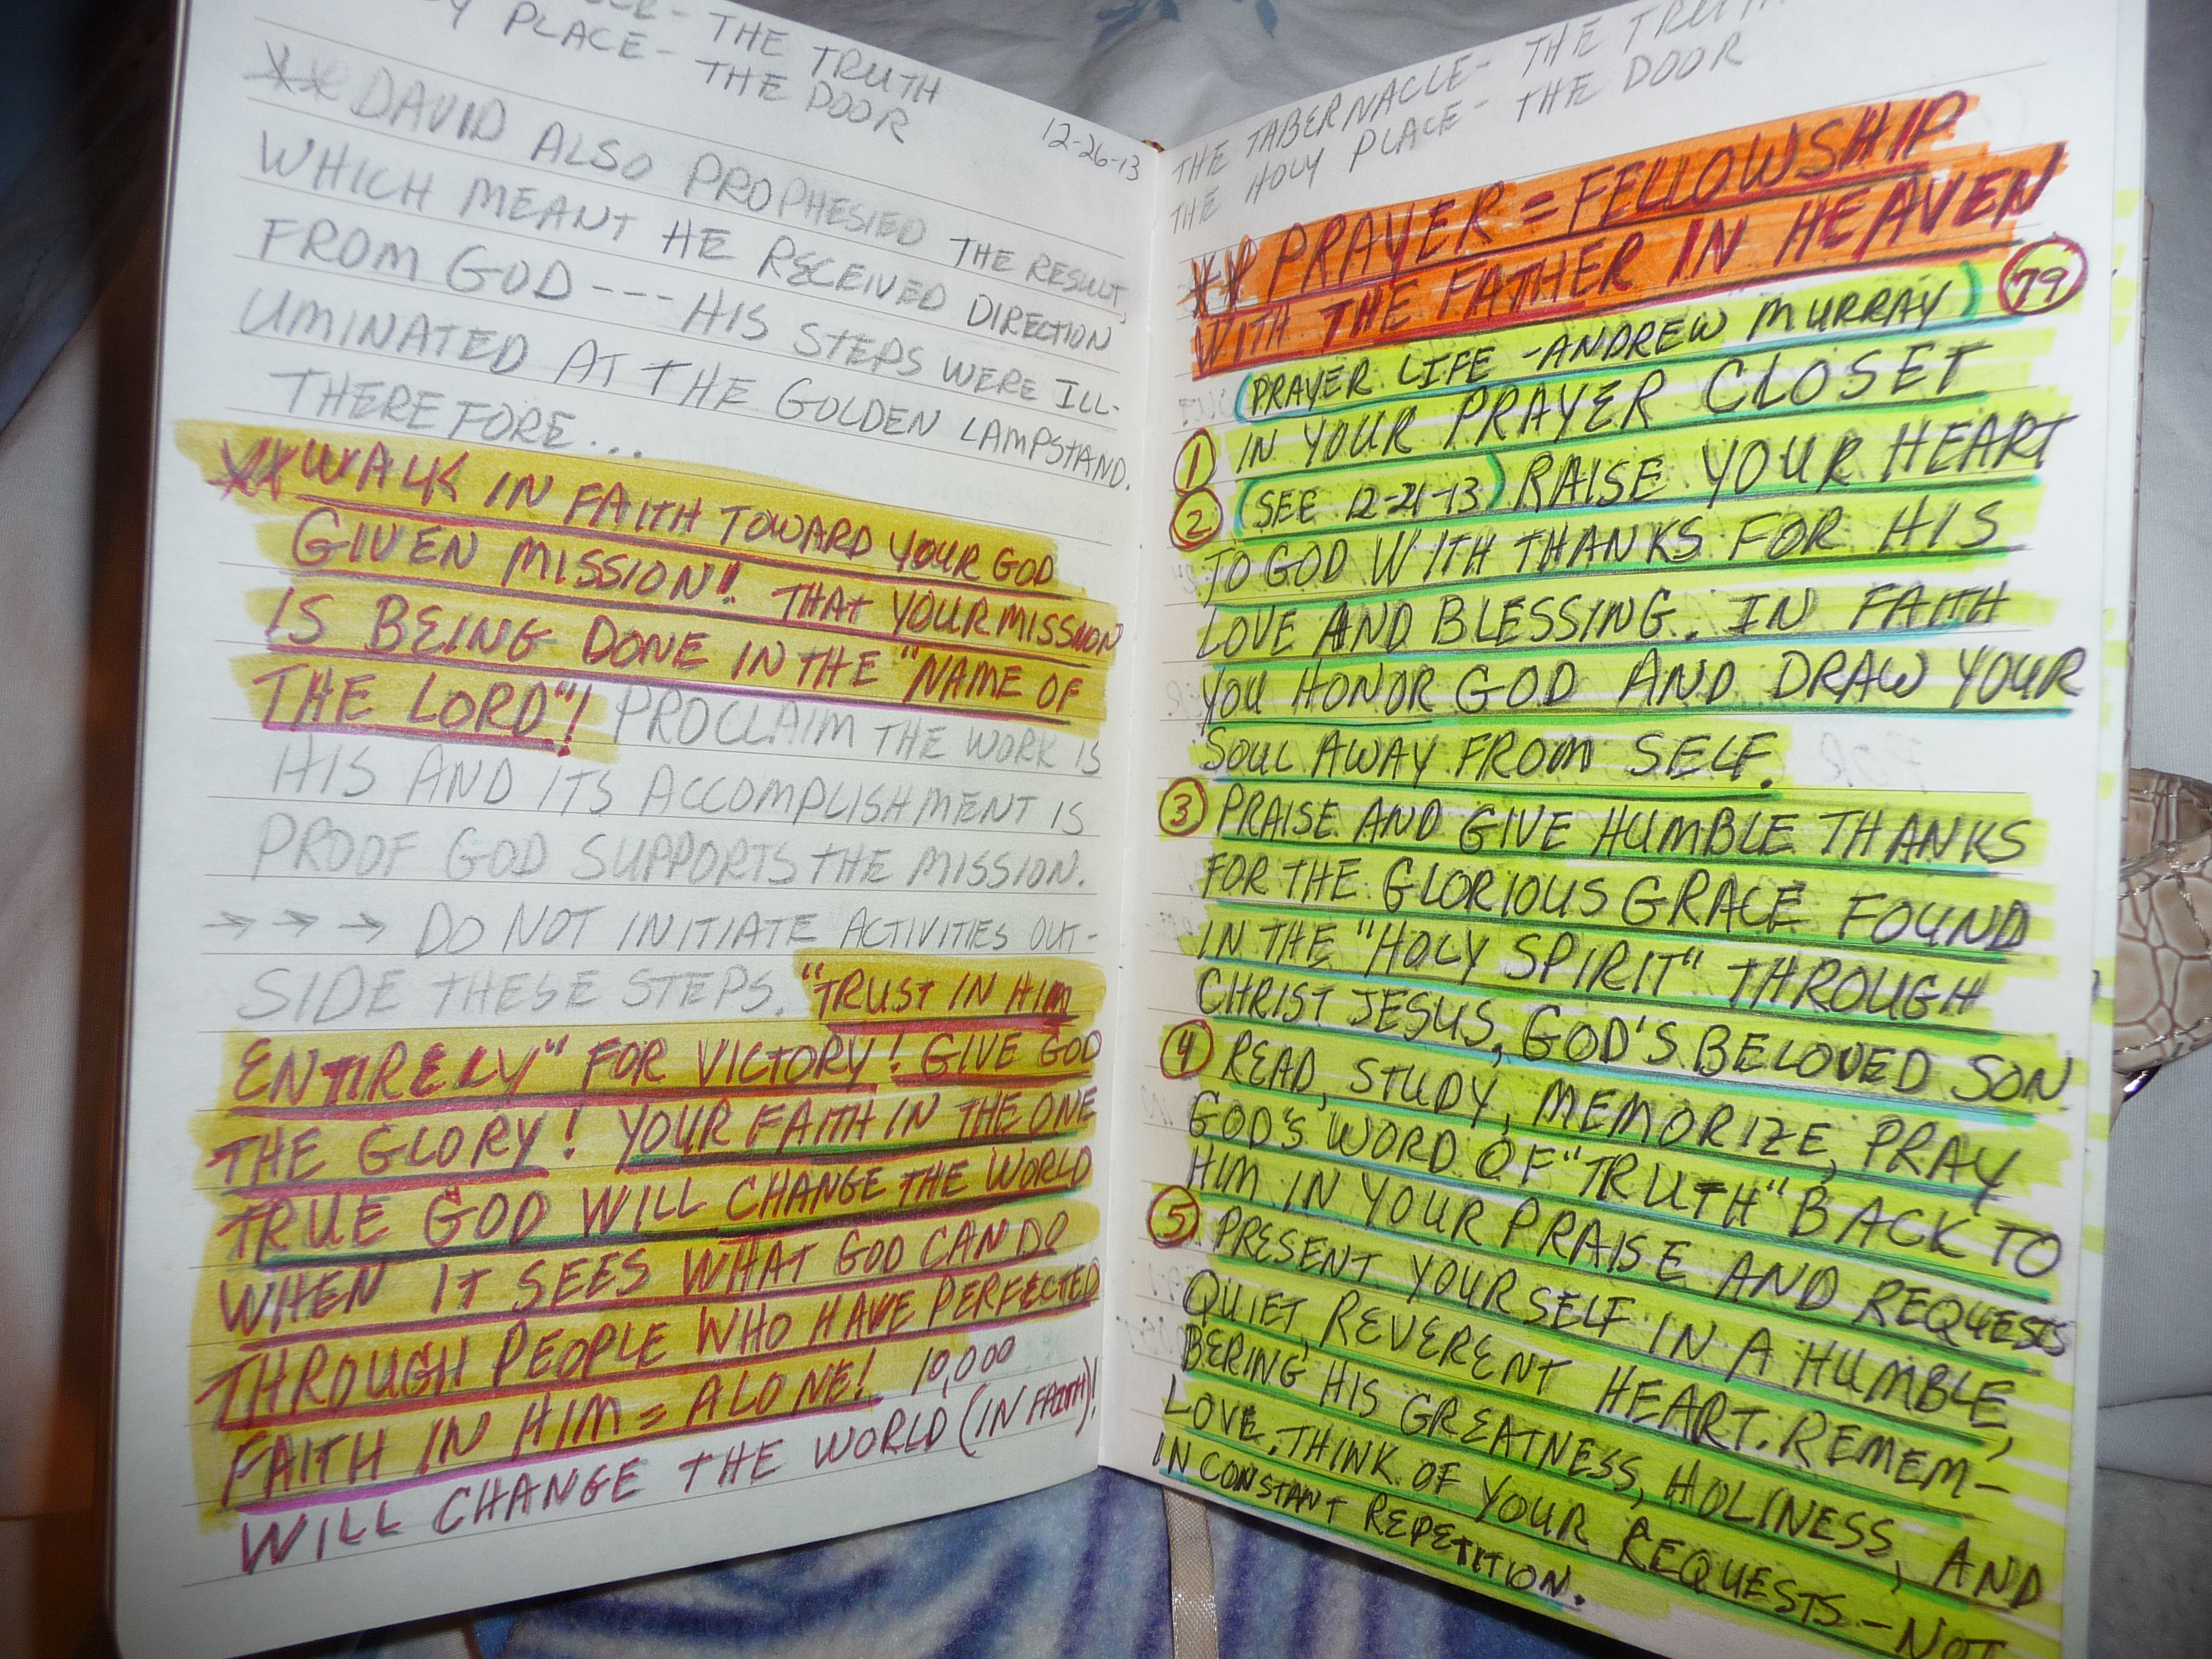 THE TRUTH
PLACE - THE DOOR
12-26-13
** DAVID ALSO PROPHESIED THE RESULT,
WHICH MEANT HE RECEIVED DIRECTION
FROM GOD --- HIS STEPS WERE ILL-
UMINATED AT THE GOLDEN LAMPSTAND.
THEREFORE...
** WALK IN FAITH TOWARD YOUR GOD
GIVEN MISSION!! THAT YOUR MISSION
IS BEING DONE IN THE "NAME OF
THE LORD"! PROCLAIM THE WORK IS
HIS AND ITS ACCOMPLISHMENT IS
PROOF GOD SUPPORTS THE MISSION.
→ → → DO NOT INITIATE ACTIVITIES OUT-
SIDE THESE STEPS. "TRUST IN HIM
ENTIRELY" FOR VICTORY! GIVE GOD
THE GLORY! YOUR FAITH IN THE ONE
TRUE GOD WILL CHANGE THE WORLD
WHEN IT SEES WHAT GOD CAN DO
THROUGH PEOPLE WHO HAVE PERFECTED
FAITH IN HIM = ALONE! 10,000
WILL CHANGE THE WORLD (IN FAITH)!
THE TABERNACLE - THE TRUTH
THE HOLY PLACE - THE DOOR
** PRAYER = FELLOWSHIP
WITH THE FATHER IN HEAVEN
(PRAYER LIFE - ANDREW MURRAY) 79
1 IN YOUR PRAYER CLOSET
2 (SEE 12-21-13) RAISE YOUR HEART
TO GOD WITH THANKS FOR HIS
LOVE AND BLESSING. IN FAITH
YOU HONOR GOD AND DRAW YOUR
SOUL AWAY FROM SELF.
3 PRAISE AND GIVE HUMBLE THANKS
FOR THE GLORIOUS GRACE FOUND
IN THE "HOLY SPIRIT" THROUGH
CHRIST JESUS, GOD'S BELOVED SON.
4 READ, STUDY, MEMORIZE, PRAY
GOD'S WORD OF "TRUTH" BACK TO
HIM IN YOUR PRAISE AND REQUESTS
5 PRESENT YOURSELF IN A HUMBLE,
QUIET, REVERENT HEART. REMEM-
BERING HIS GREATNESS, HOLINESS, AND
LOVE. THINK OF YOUR REQUESTS - NOT
IN CONSTANT REPETITION.